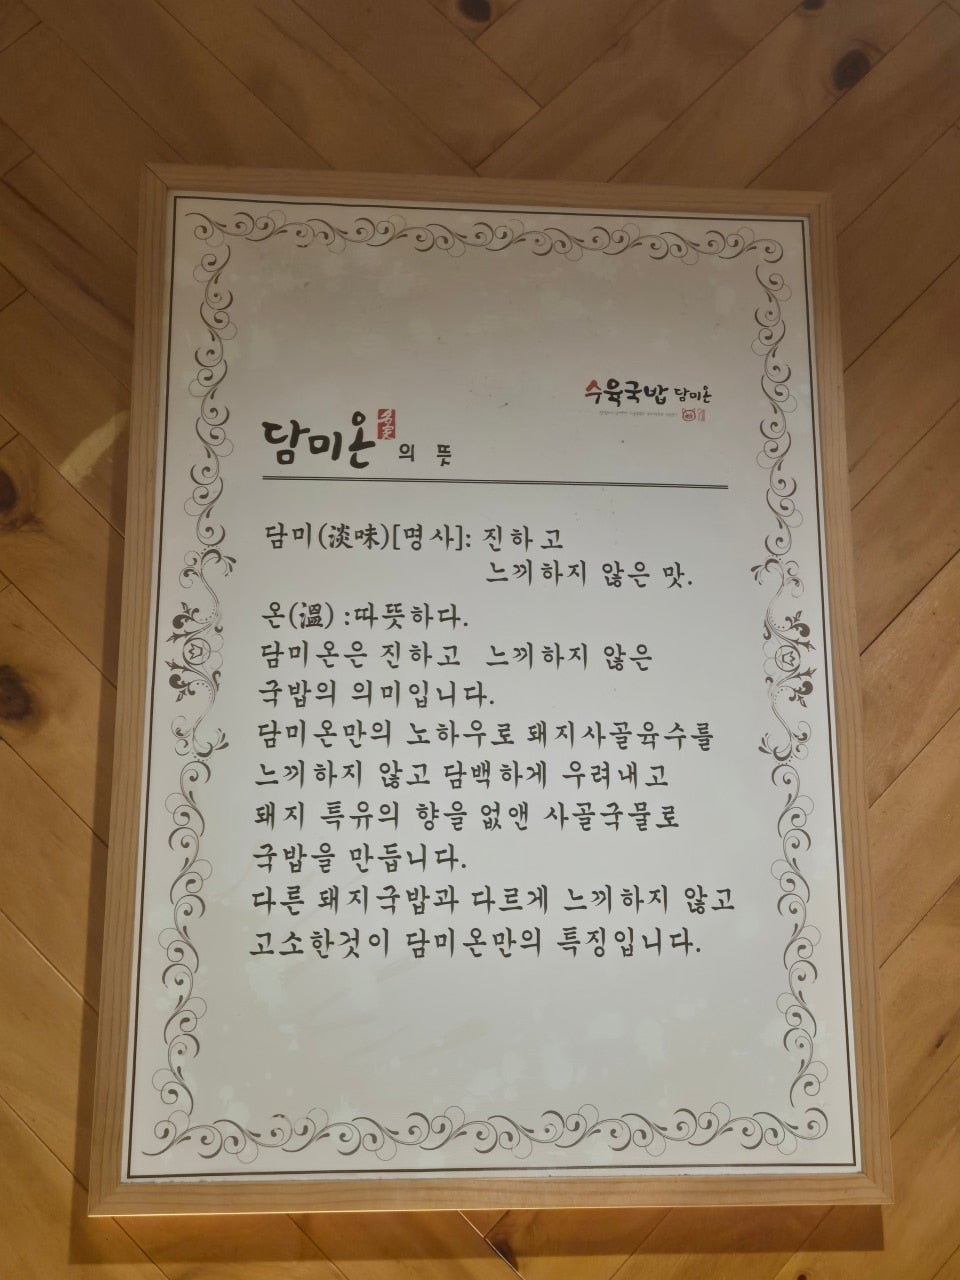 수육국밥 담미온
담미온 名家 의 뜻
담미(淡味)[명사]: 진하고
느끼하지 않은 맛.
온(溫) :따뜻하다.
담미온은 진하고 느끼하지 않은
국밥의 의미입니다.
담미온만의 노하우로 돼지사골육수를
느끼하지 않고 담백하게 우려내고
돼지 특유의 향을 없앤 사골국물로
국밥을 만듭니다.
다른 돼지국밥과 다르게 느끼하지 않고
고소한것이 담미온만의 특징입니다.